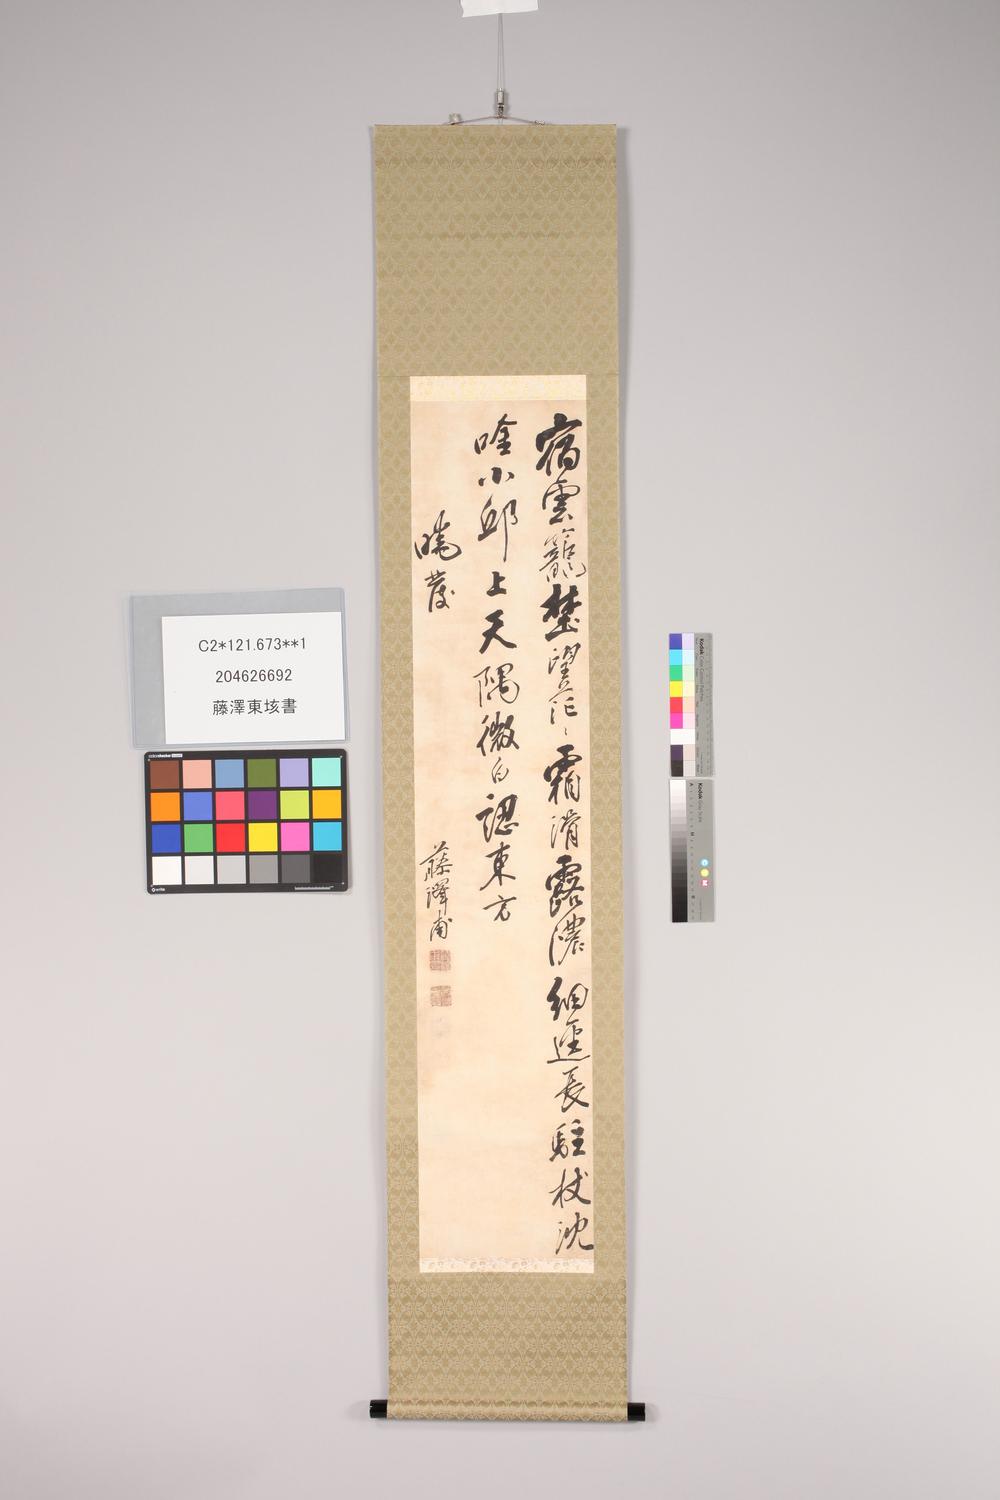 宿雲籠埜望茫々霜滑露濃細逕長駐杖沈
唫小邱上天隅微白認東方
曉發
藤澤甫
C2*121.673**1
204626692
藤澤東垓書
Kodak
Kodak